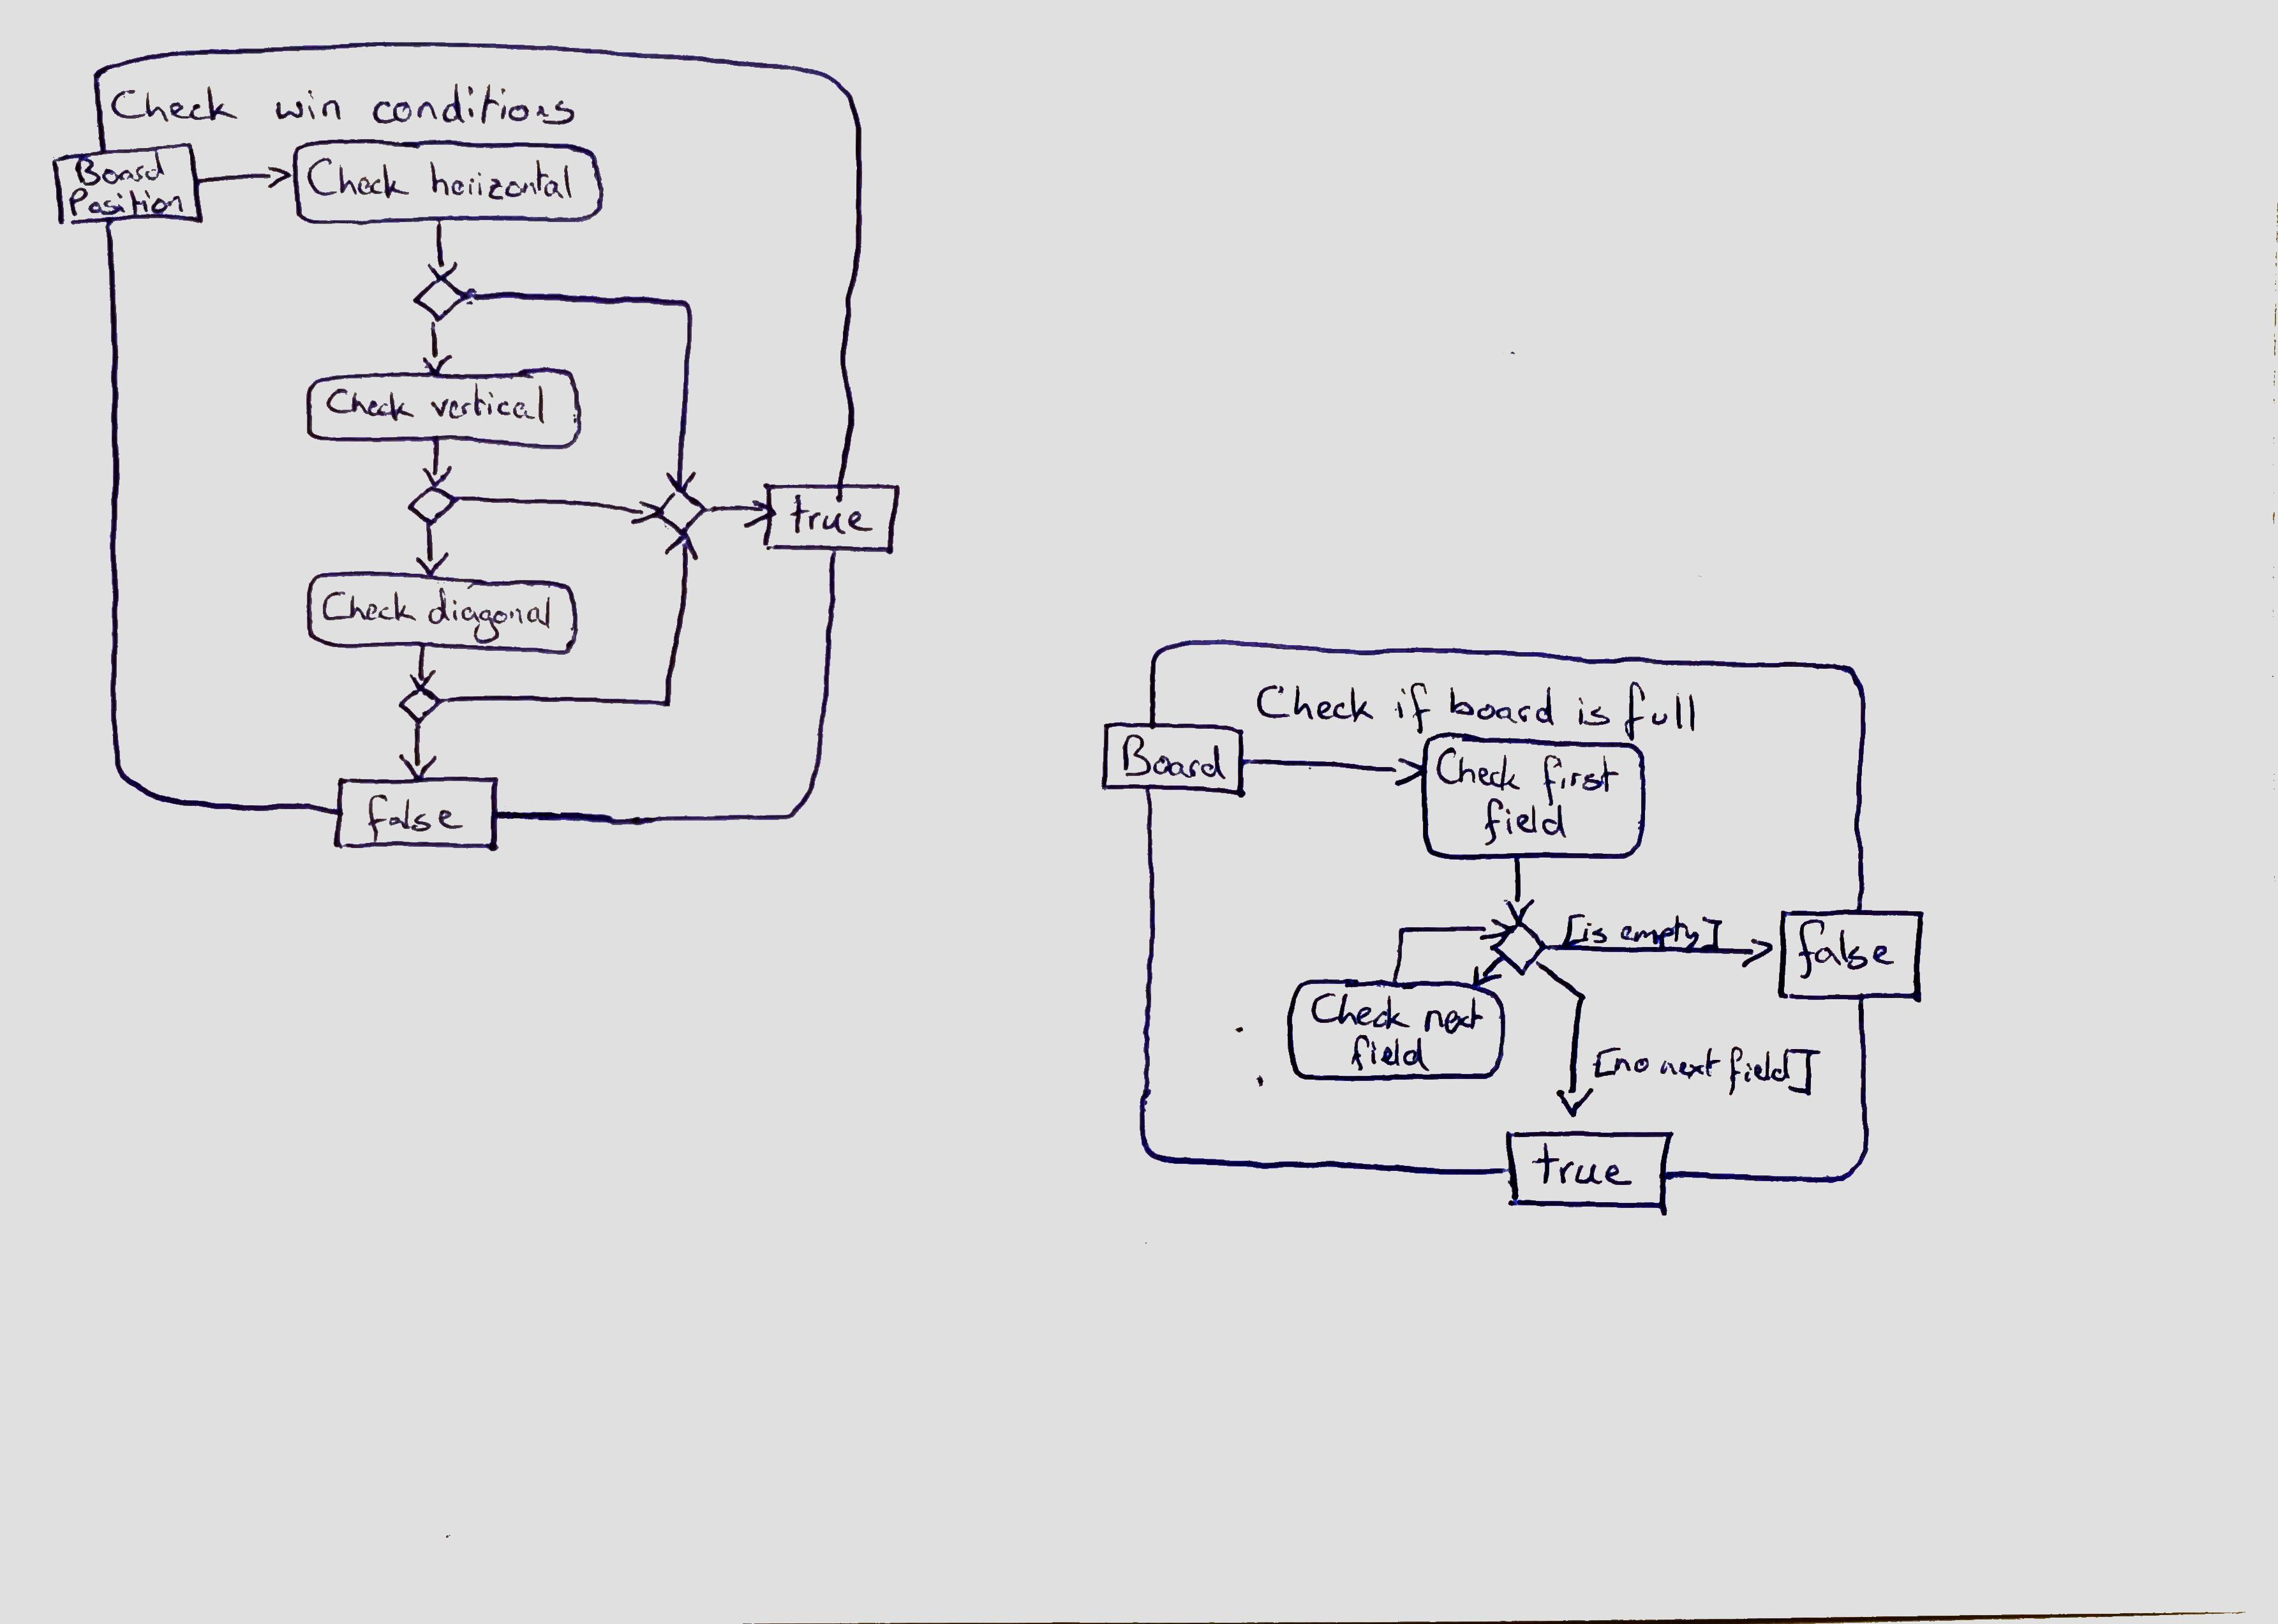 Check win conditions
Board
Position
Check horizontal
Check vertical
true
Check diagonal
false
Check if board is full
Board
Check first
field
[is empty]
false
Check next
field
[no next field]
true